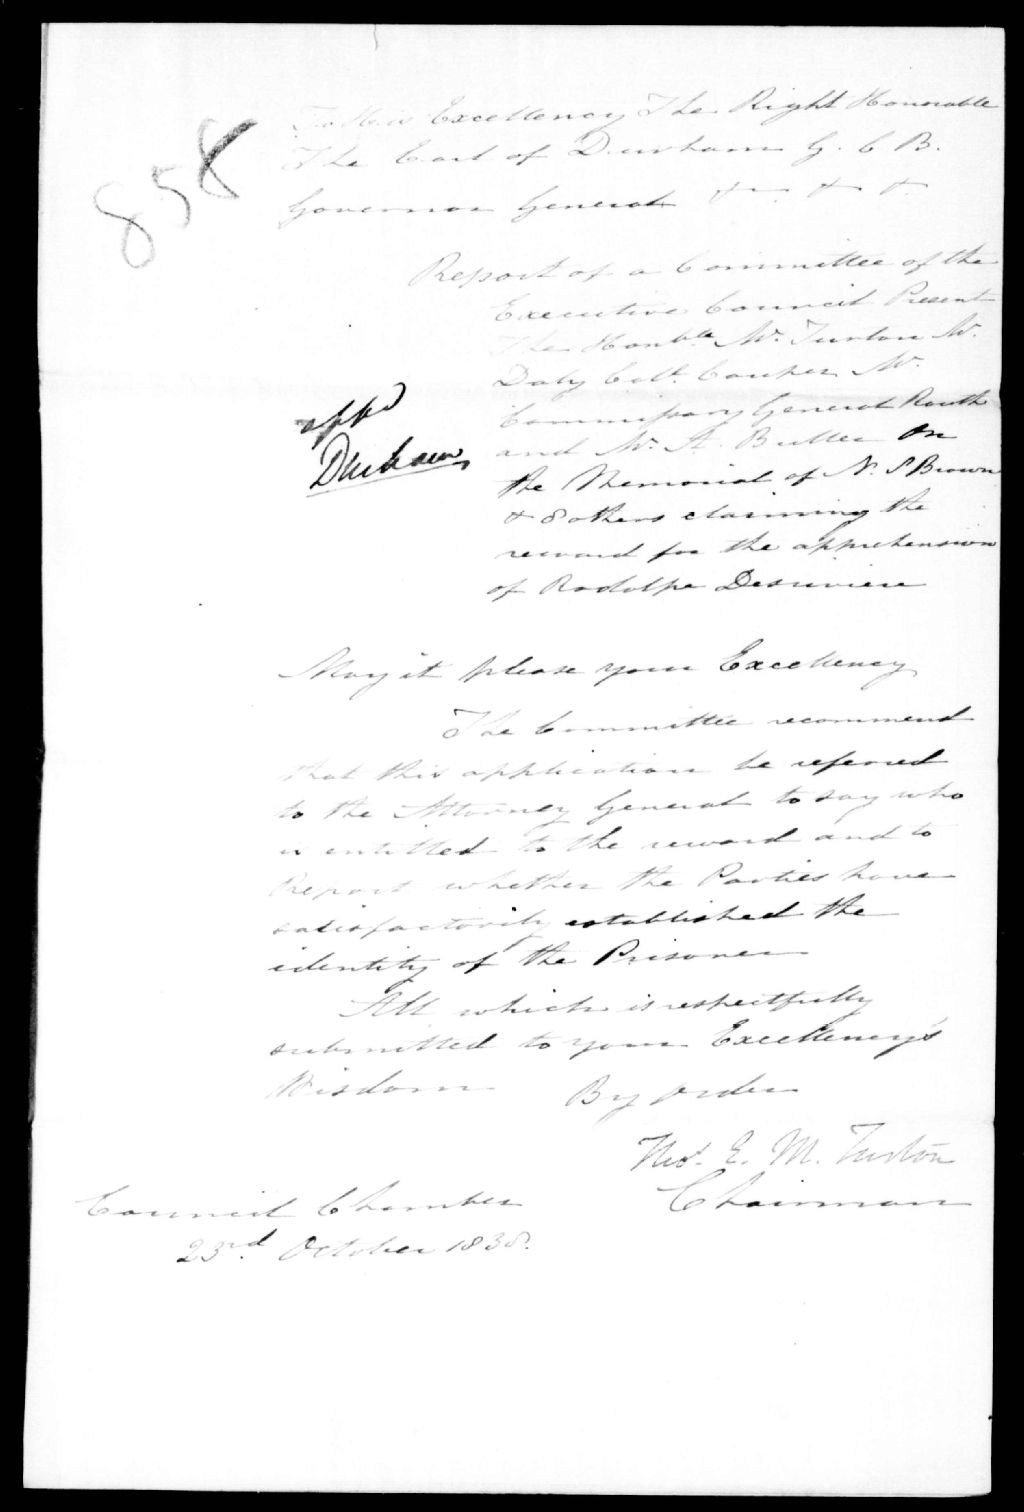 858
To His Excellency The Right Honorable
The Earl of Durham G. C B.
Governor General &c. & &
Report of a Committee of the
Executive Council Present
The Honble Mr. Turton Mr.
Daly Coll. Couper Mr.
Commissary General Routh
and Mr. A. Buller on
the Memorial of N. S Brown
& 8 others claiming the
reward for the apprehension
of Rodolphe Desriviere
appd
Durham
May it please your Excellency
The Committee recommend
that this application be referred
to the Attorney General to say who
is entitled to the reward and to
Report whether the Parties have
satisfactorily established the
identity of the Prisoner
All which is respectfully
submitted to your Excellency's
Wisdom
By order
Thos. E. M. Turton
Chairman
Council Chamber
23rd October 1838.